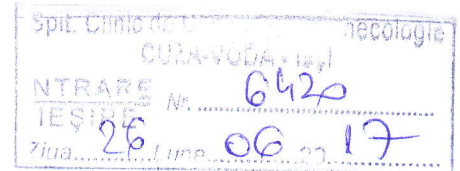 Spit. Clinic de O necologie
CUZA-VODA - Iași
INTRARE
IEȘIRE Nr. 6420
Ziua 26 Luna 06 20 17